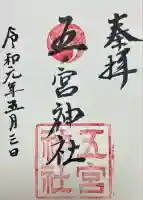 奉拝
五宮神社
五宮神社
令和元年五月三日